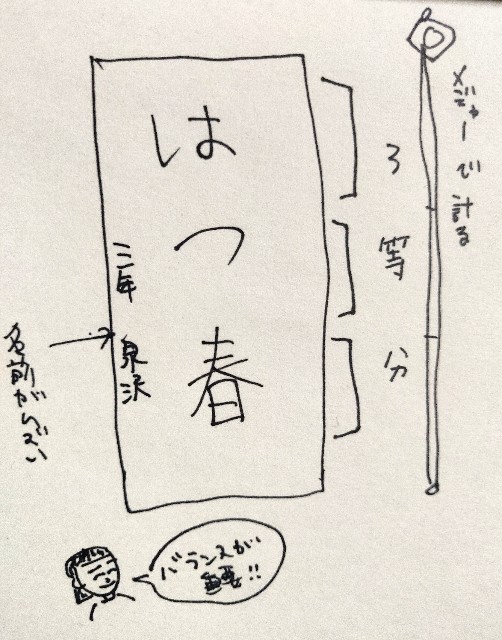 メジャーで計る
3等分
はつ春
三年 泉沢
名前がムズい
バランスが
重要!!